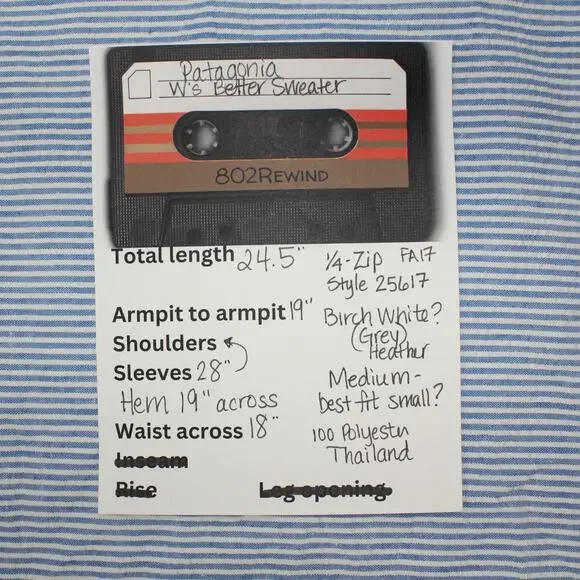 Patagonia
W's Better Sweater
802REWIND
Total length 24.5"
1/4-Zip FA17
Style 25617
Armpit to armpit 19"
Birch White?
Shoulders
(Grey)
Heather
Sleeves 28"
Medium -
Hem 19" across
best fit small?
Waist across 18"
100 Polyester
Thailand
Inseam
Rise
Leg opening